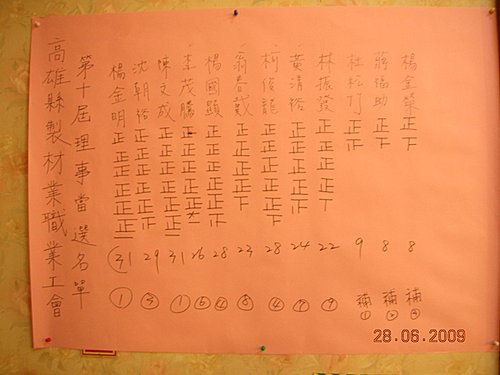 高雄縣製材業職業工會
第十屆理事當選名單
楊金明 正正正正正正一 31 ①
沈朝 正正正正正 29 ③
陳文成 正正正正正正一 31 ①
李茂騰 正正正正正一 26 ⑥
楊國顯 正正正正正下 28 ④
翁春 正正正正下 23 ⑧
柯俊龍 正正正正正下 28 ④
黃清 正正正正 24 ⑦
林振發 正正正正丅 22 ⑨
杜松竹 正 9 補①
蔣福助 正下 8 補②
楊金榮 正下 8 補③
28.06.2009